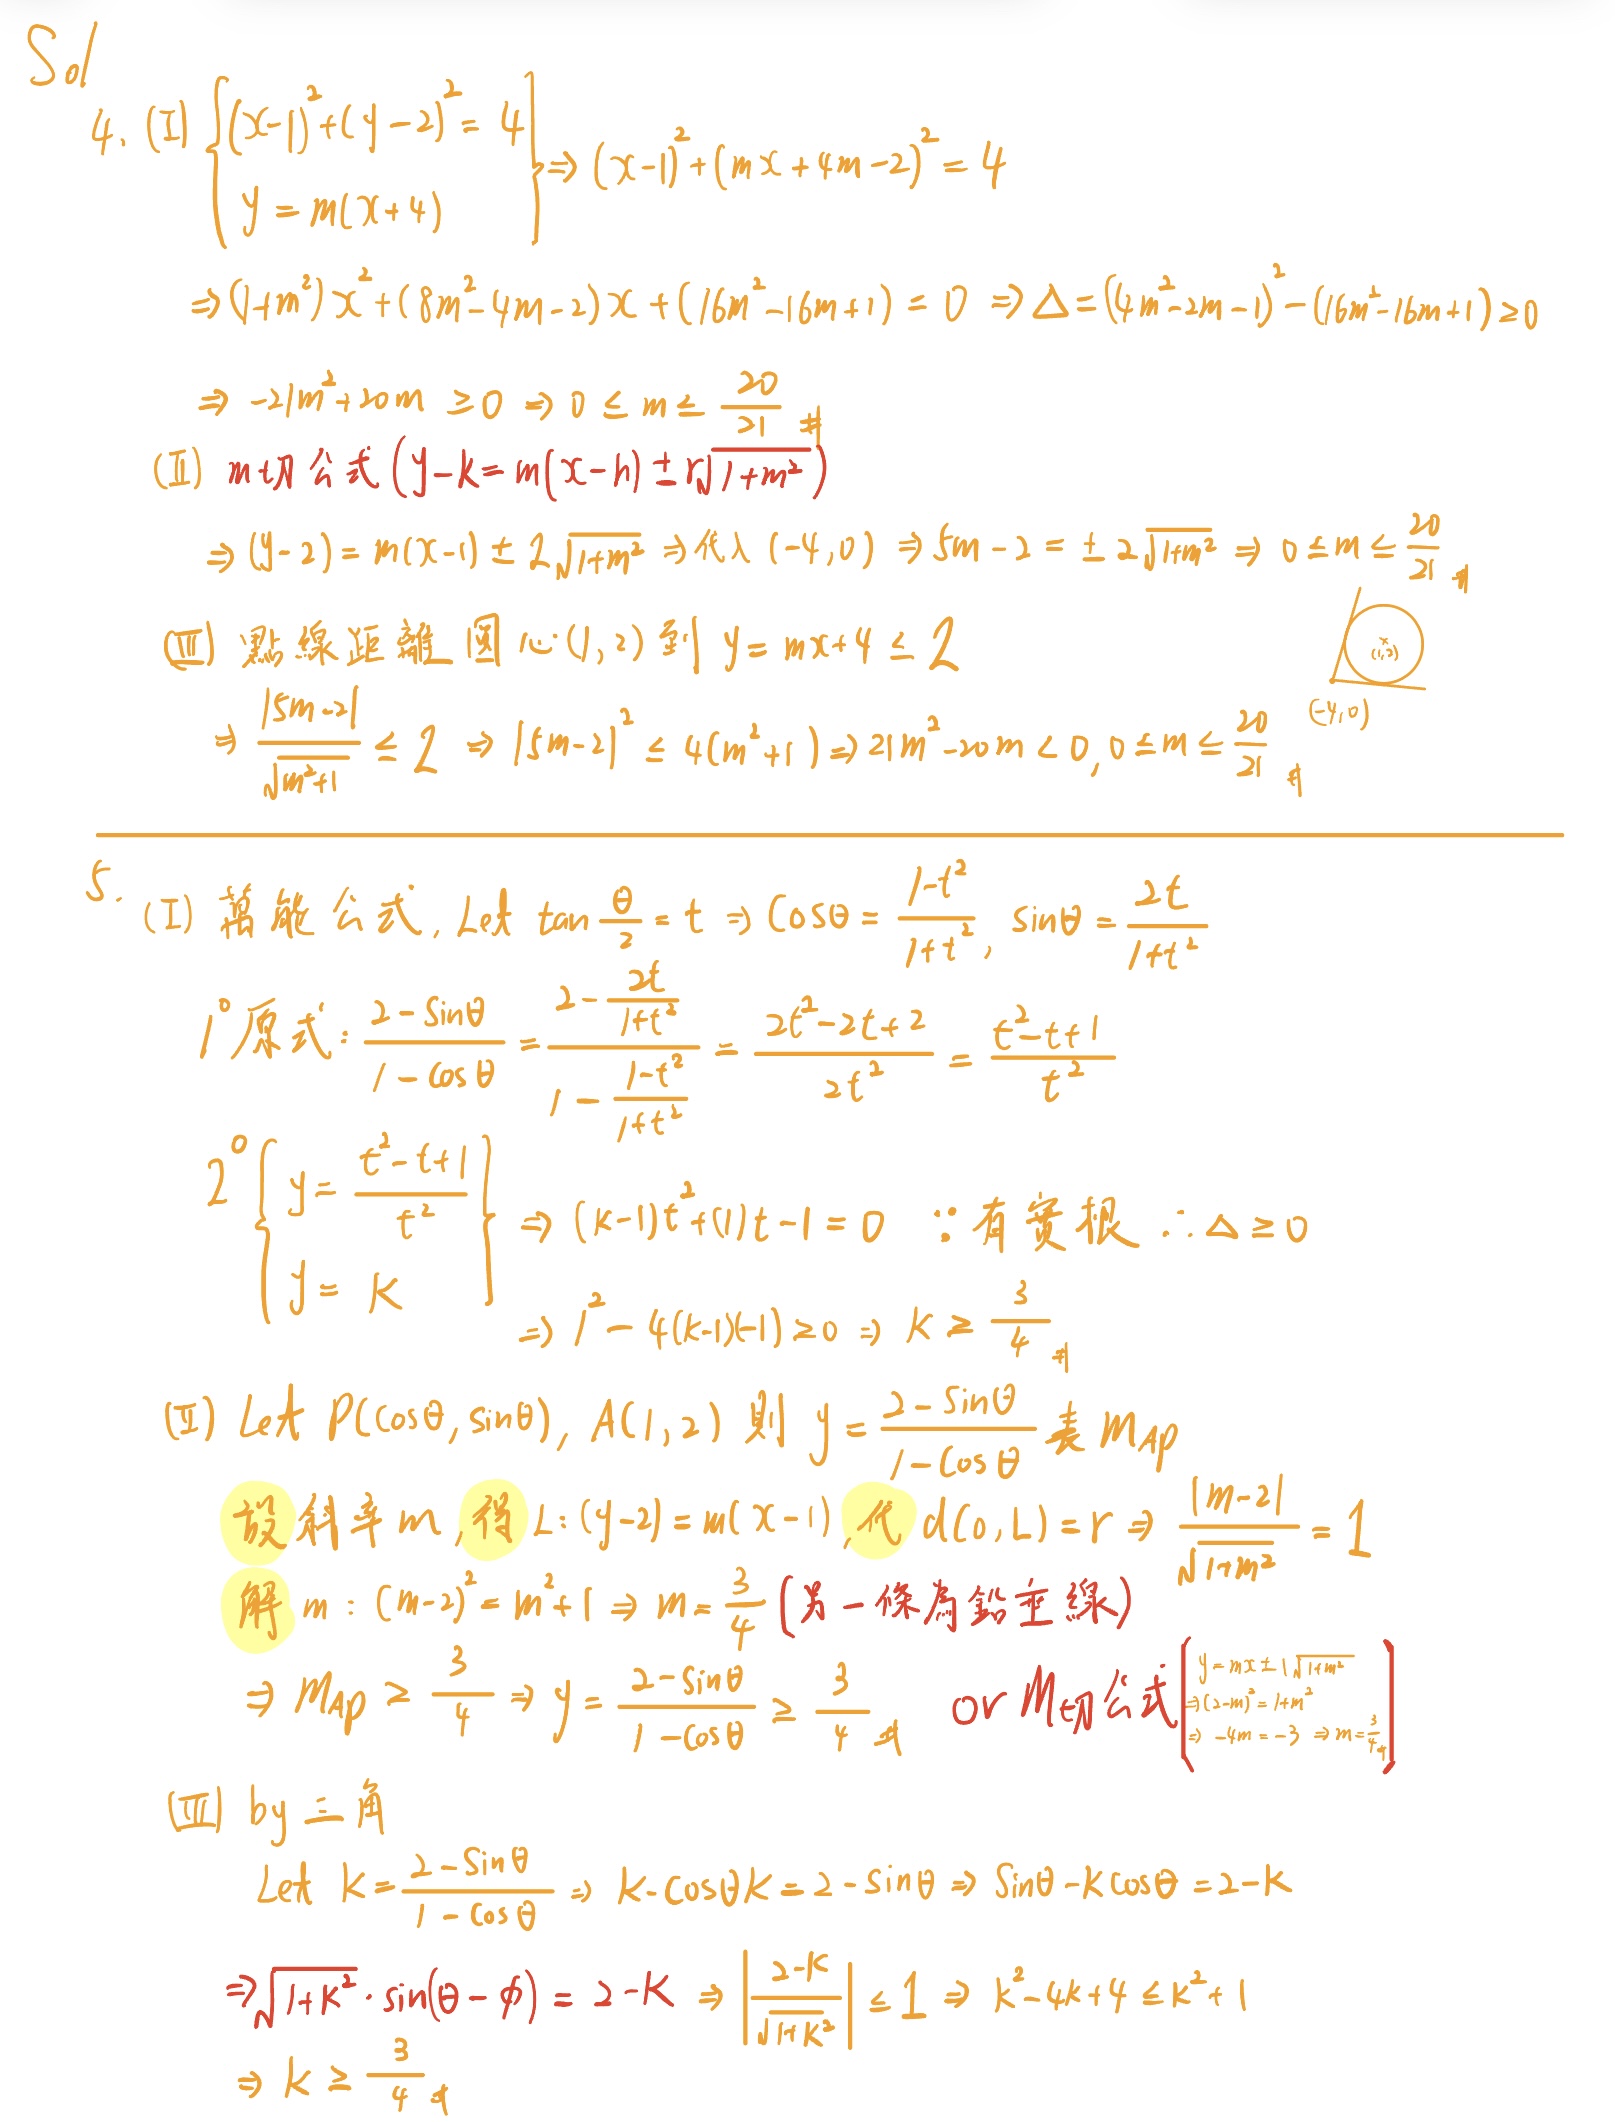 Sol
4. (I) { (x-1)²+(y-2)²=4
y=m(x+4) } ⇒ (x-1)²+(mx+4m-2)²=4
⇒ (1+m²)x²+(8m²-4m-2)x+(16m²-16m+1)=0 ⇒ Δ=(4m²-2m-1)²-(16m²-16m+1)≥0
⇒ -21m²+20m ≥0 ⇒ 0≤m≤20/21 #
(II) m切公式(y-k=m(x-h)±r√(1+m²))
⇒ (y-2)=m(x-1)±2√(1+m²) ⇒ 代入(-4,0) ⇒ 5m-2=±2√(1+m²) ⇒ 0≤m≤20/21 #
(III) 點線距離 圓心(1,2)到 y=mx+4 ≤2
(1,2)
(-4,0)
⇒ |5m-2|/√(m²+1) ≤2 ⇒ |5m-2|² ≤4(m²+1) ⇒ 21m²-20m<0, 0≤m≤20/21 #
5. (I) 萬能公式, Let tan θ/2 = t ⇒ Cosθ=(1-t²)/(1+t²), sinθ=2t/(1+t²)
1° 原式: (2-Sinθ)/(1-Cosθ) = (2-2t/(1+t²))/(1-(1-t²)/(1+t²)) = (2t²-2t+2)/2t² = (t²-t+1)/t²
2° { y=(t²-t+1)/t²
y=k } ⇒ (k-1)t²+(1)t-1=0 ∵有實根 ∴Δ≥0
⇒ 1²-4(k-1)(-1)≥0 ⇒ k≥3/4 #
(II) Let P(cosθ, sinθ), A(1,2) 則 y=(2-Sinθ)/(1-Cosθ) 表 m_AP
設斜率m, 得L:(y-2)=m(x-1), 代 d(0,L)=r ⇒ |m-2|/√(1+m²) = 1
解 m: (m-2)²=m²+1 ⇒ m=3/4 (另一條為鉛垂線)
⇒ m_AP ≥ 3/4 ⇒ y=(2-Sinθ)/(1-Cosθ) ≥ 3/4 # or m切公式 [ y=mx±1√(1+m²)
⇒(2-m)²=1+m²
⇒ -4m=-3 ⇒ m=3/4 # ]
(III) by 三角
Let k=(2-Sinθ)/(1-Cosθ) ⇒ k-cosθk=2-sinθ ⇒ Sinθ-kcosθ=2-k
⇒ √(1+k²)·sin(θ-φ)=2-k ⇒ |(2-k)/√(1+k²)| ≤1 ⇒ k²-4k+4≤k²+1
⇒ k≥3/4 #